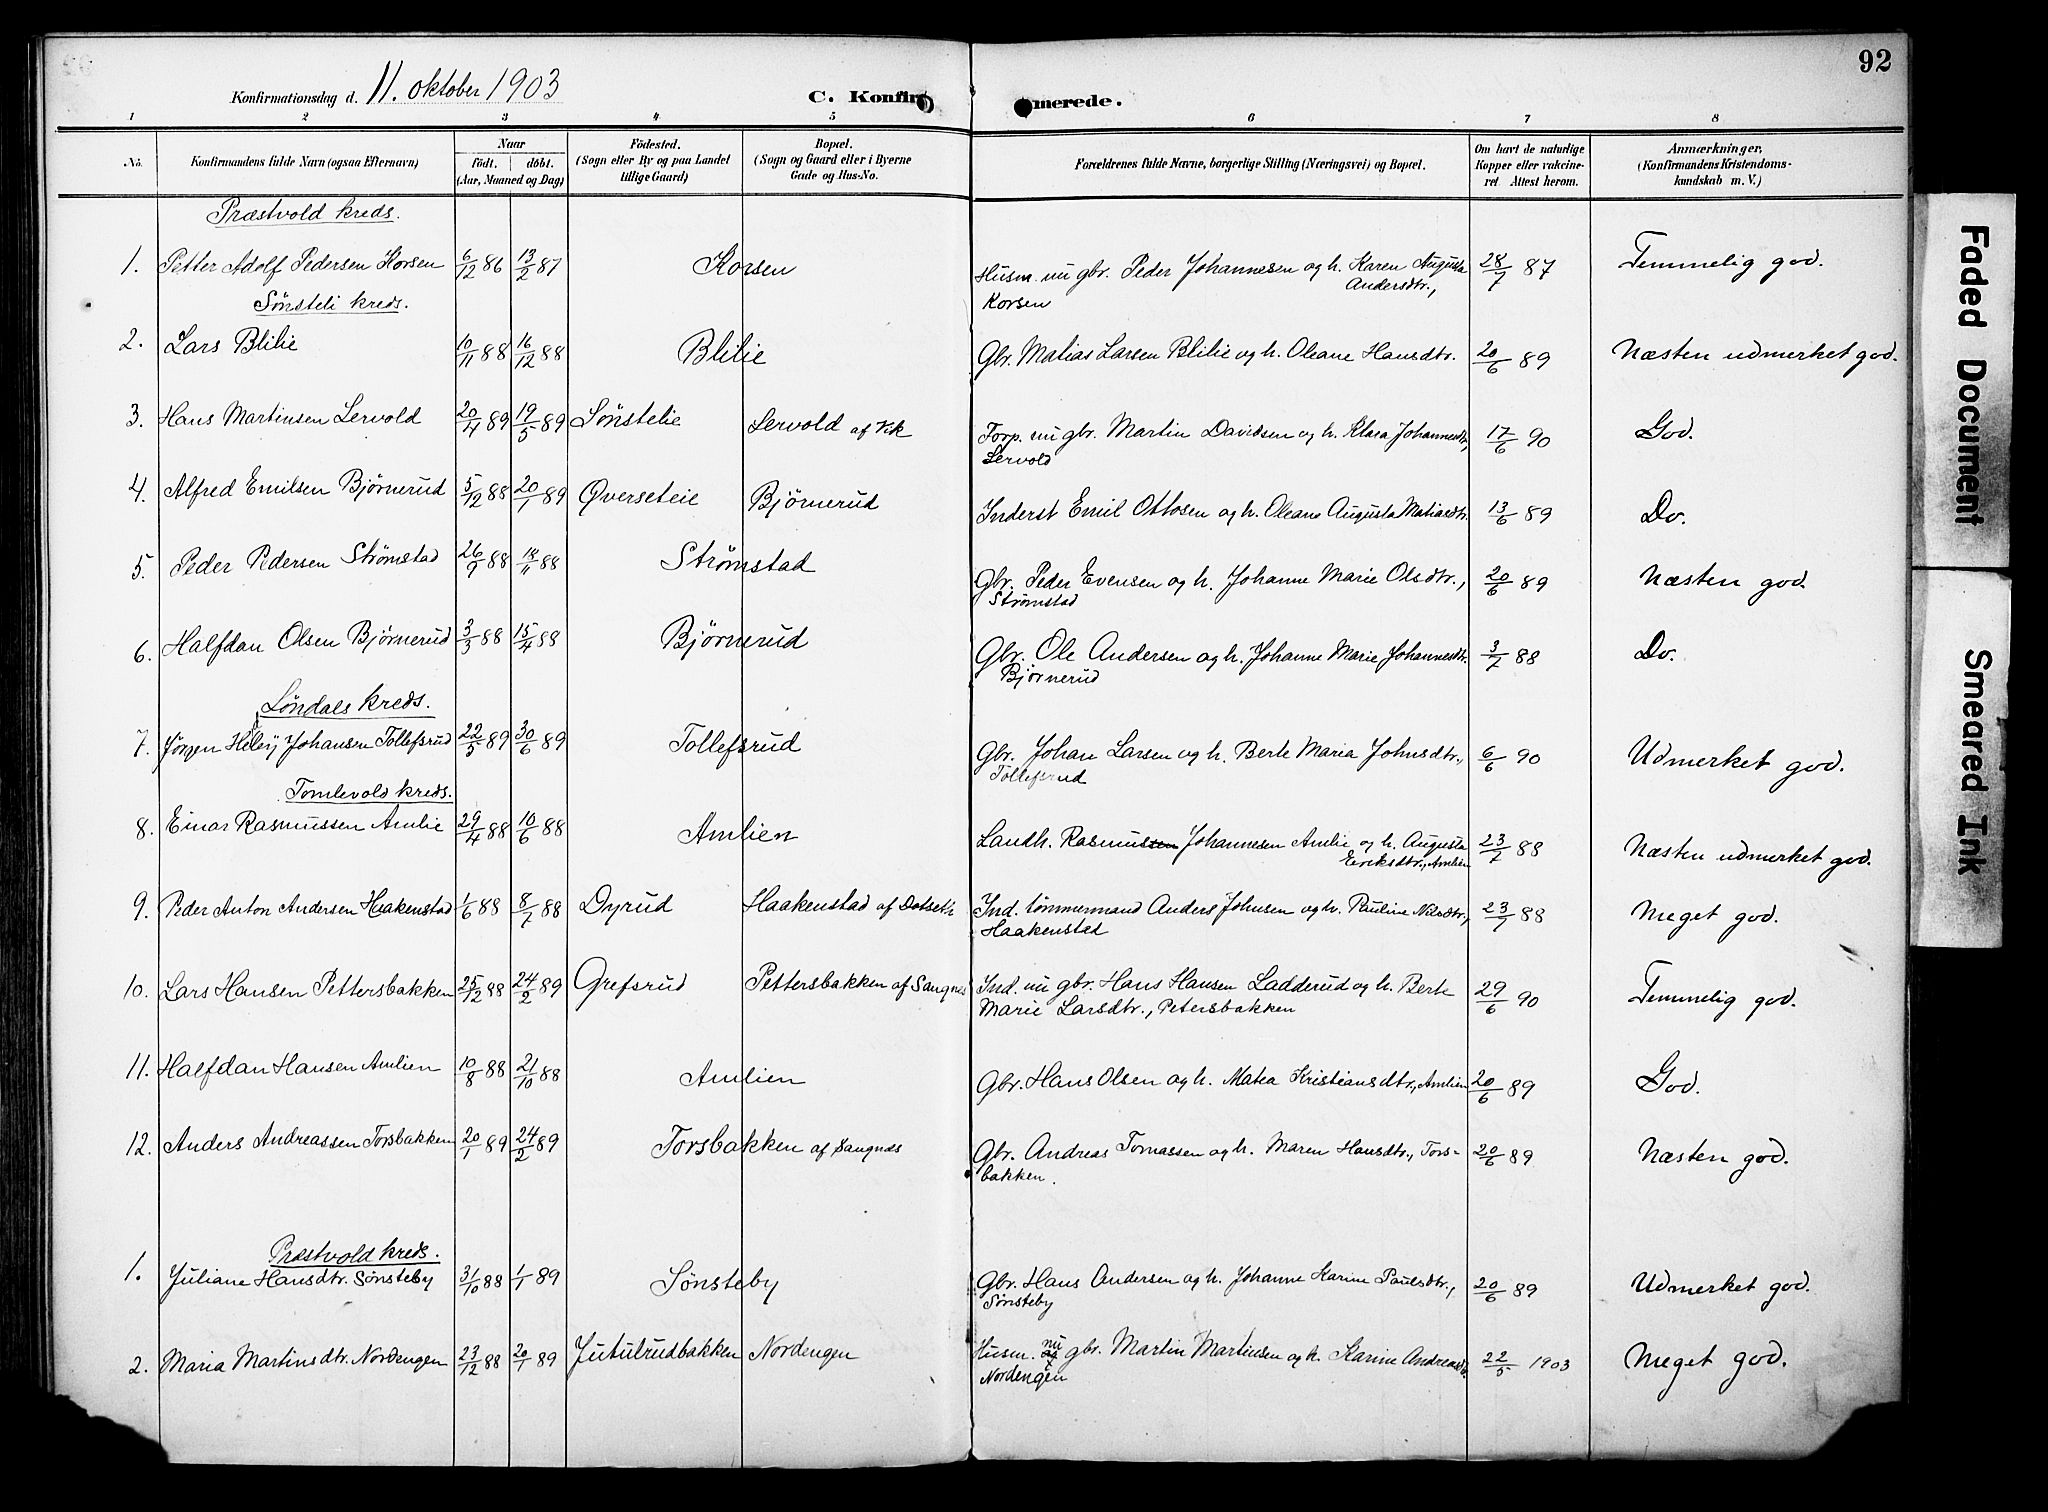 92
Konfirmationsdag d. 11. oktober 1903
C. Konfirmerede.
1 2 3 4 5 6 7 8
No. Konfirmandens fulde Navn (ogsaa Efternavn) Naar født. døbt. (Aar, Maaned og Dag) Fødested. (Sogn eller By og paa Landet tillige Gaard) Bopæl. (Sogn og Gaard eller i Byerne Gade og Hus-No. Forældrenes fulde Navne, borgerlige Stilling (Næringsvei) og Bopæl. Om havt de naturlige Kopper eller vakcineret Attest herom. Anmærkninger, (Konfirmandens Kristendomskundskab m. V.)
Præstvold kreds.
1. Petter Adolf Pedersen Korsen 6/12 86 13/2 87 Korsen Husm. nu gbr. Peder Johannesen og h. Karen Augusta Andersdtr., Korsen 28/7 87 Temmelig god.
Sønsteli kreds.
2. Lars Blilie 10/11 88 16/12 88 Blilie Gbr. Matias Larsen Blilie og h. Oleane Hansdtr. 20/6 89 Næsten udmerket god.
3. Hans Martinsen Lervold 20/4 89 19/5 89 Sønstelie Lervold af Vik Forp. nu gbr. Martin Davidsen og h. Klara Johannesdtr, Lervold 17/6 90 God.
4. Alfred Emilsen Bjørnerud 5/12 88 20/1 89 Øverseteie Bjørnerud Inderst Emil Ottosen og h. Oleane Augusta Matiasdtr. 13/6 89 Do.
5. Peder Pedersen Strømstad 26/9 88 18/11 88 Strømstad Gbr. Peder Evensen og h. Johanne Marie Olsdtr., Strømstad 20/6 89 Næsten god.
6. Halfdan Olsen Bjørnerud 3/3 88 15/4 88 Bjørnerud Gbr. Ole Andersen og h. Johanne Marie Johannesdtr. Bjørnerud 3/7 88 Do.
Løndals kreds.
7. Jørgen Johansen Tollefsrud 22/5 89 30/6 89 Tollefsrud Gbr. Johan Larsen og h. Berte Maria Johnsdtr., Tollefsrud 6/6 90 Udmerket god.
Tomlevold kreds.
8. Einar Rasmussen Amlie 29/4 88 10/6 88 Amlien Landh. Rasmus Johannesen Amlie og h. Augusta Eriksdtr., Amlien 23/7 88 Næsten udmerket god.
9. Peder Anton Andersen Haakenstad 1/6 88 8/7 88 Dyrud Haakenstad af Dotseth Ind. tømmermand Anders Johnsen og h. Pauline Nilsdtr., Haakenstad 23/7 88 Meget god.
10. Lars Hansen Pettersbakken 25/12 88 24/2 89 Grefsrud Pettersbakken af Sangnes Ind. nu gbr. Hans Hansen Ladderud og h. Berte Marie Larsdtr., Petersbakken 29/6 90 Temmelig god.
11. Halfdan Hansen Amlien 10/8 88 21/10 88 Amlien Gbr. Hans Olsen og h. Matea Kristiansdtr., Amlien 20/6 89 God.
12. Anders Andreassen Torsbakken 20/1 89 24/2 89 Torsbakken af Sangnæs Gbr. Andreas Tomassen og h. Maren Hansdtr., Torsbakken. 20/6 89 Næsten god.
Præstvold kreds.
1. Juliane Hansdtr. Sønsteby 31/10 88 1/1 89 Sønsteby Gbr. Hans Andersen og h. Johanne Karine Paulsdtr., Sønsteby 20/6 89 Udmerket god.
2. Maria Martinsdtr. Nordengen 23/12 88 20/1 89 Jutulrudbakken Nordengen Husm. nu gbr. Martin Martinsen og h. Karine Andreasdtr. Nordengen 22/5 1903 Meget god.
Faded Document
Smeared Ink